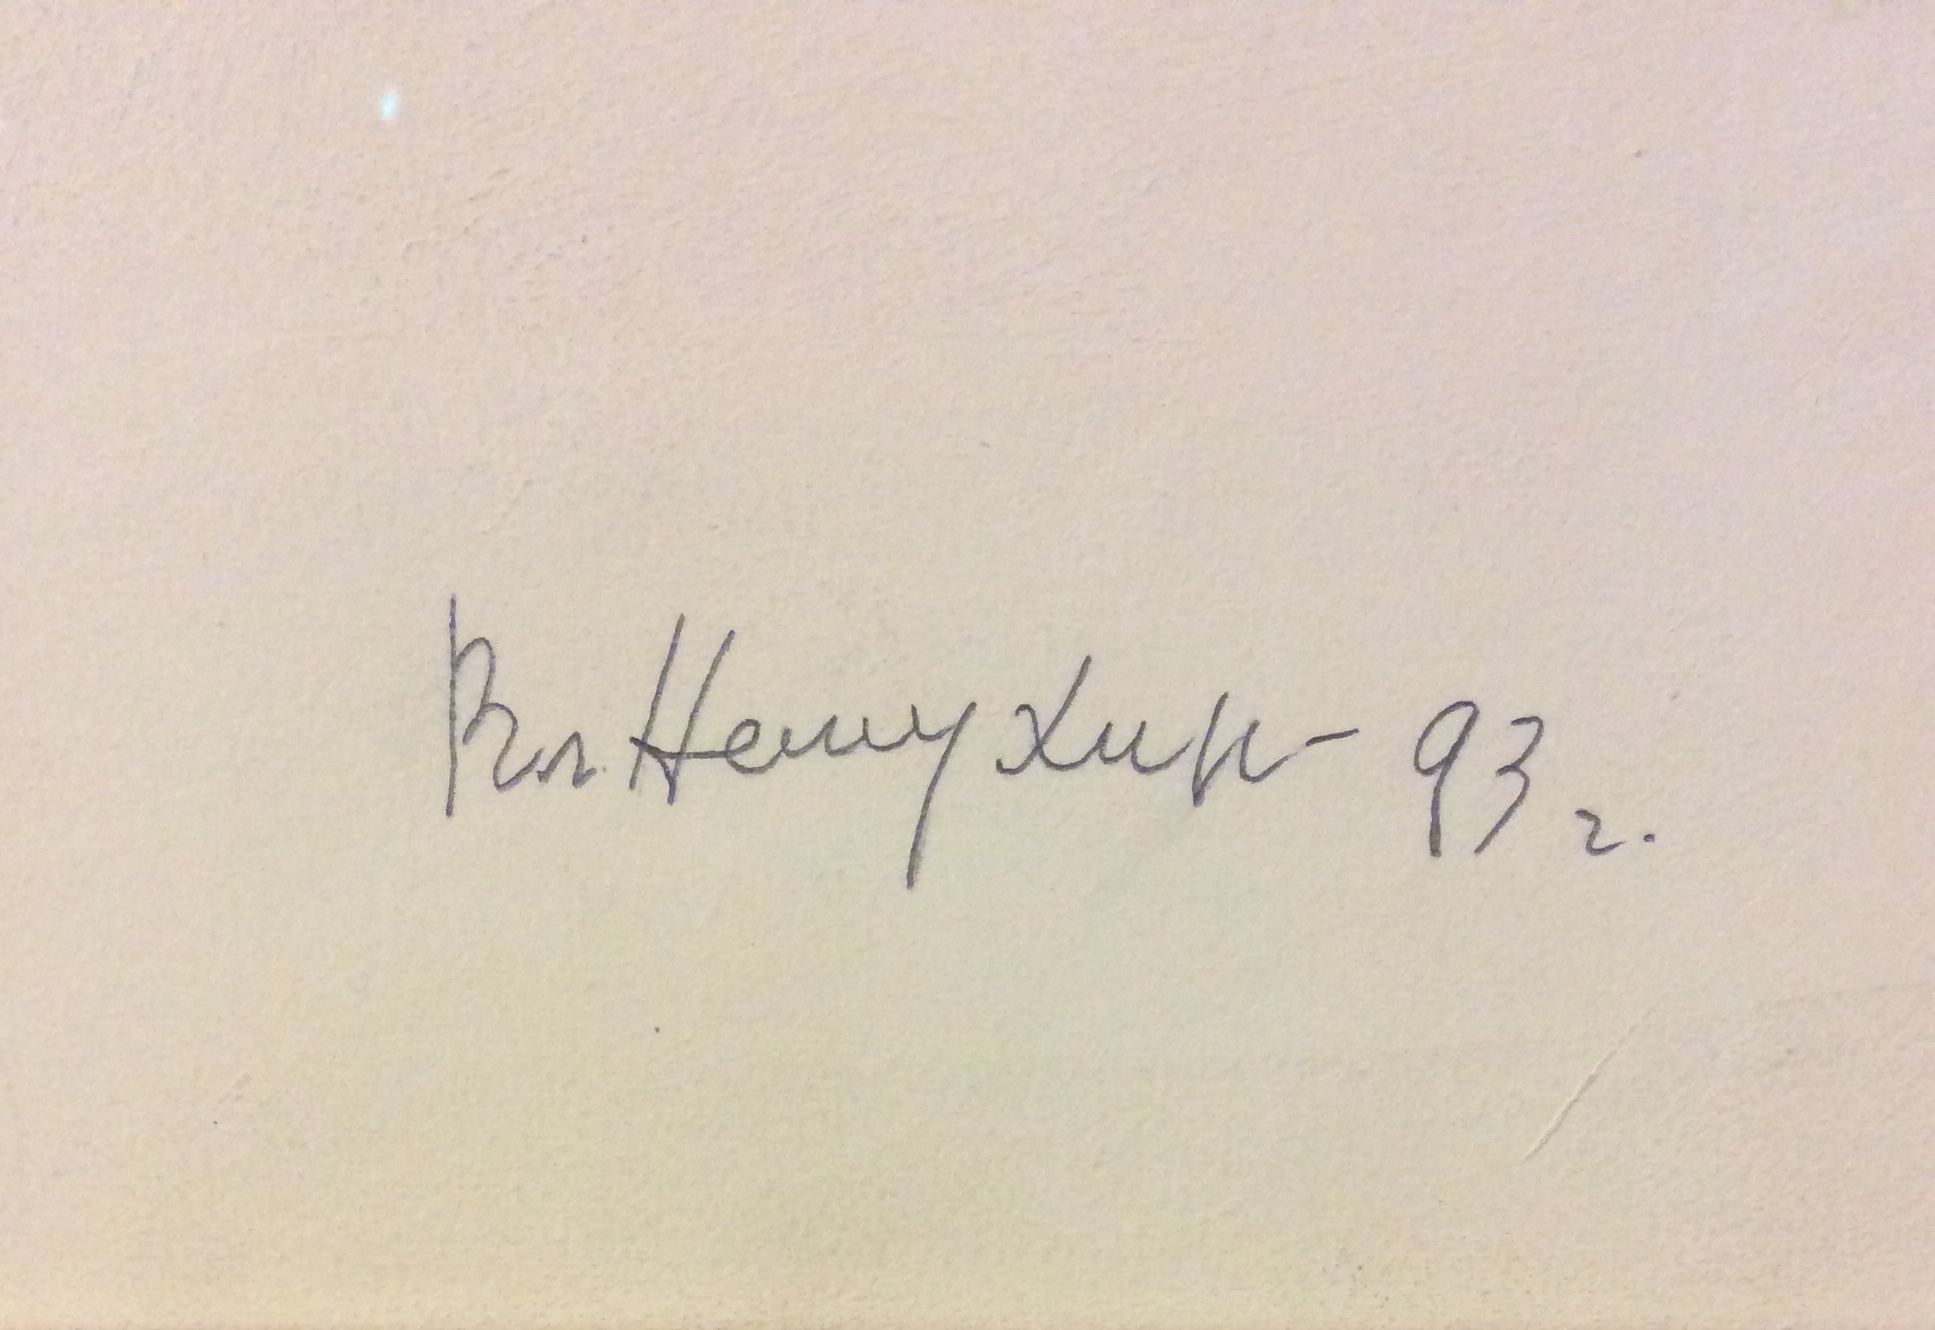 Вл. Немухин - 93 г.